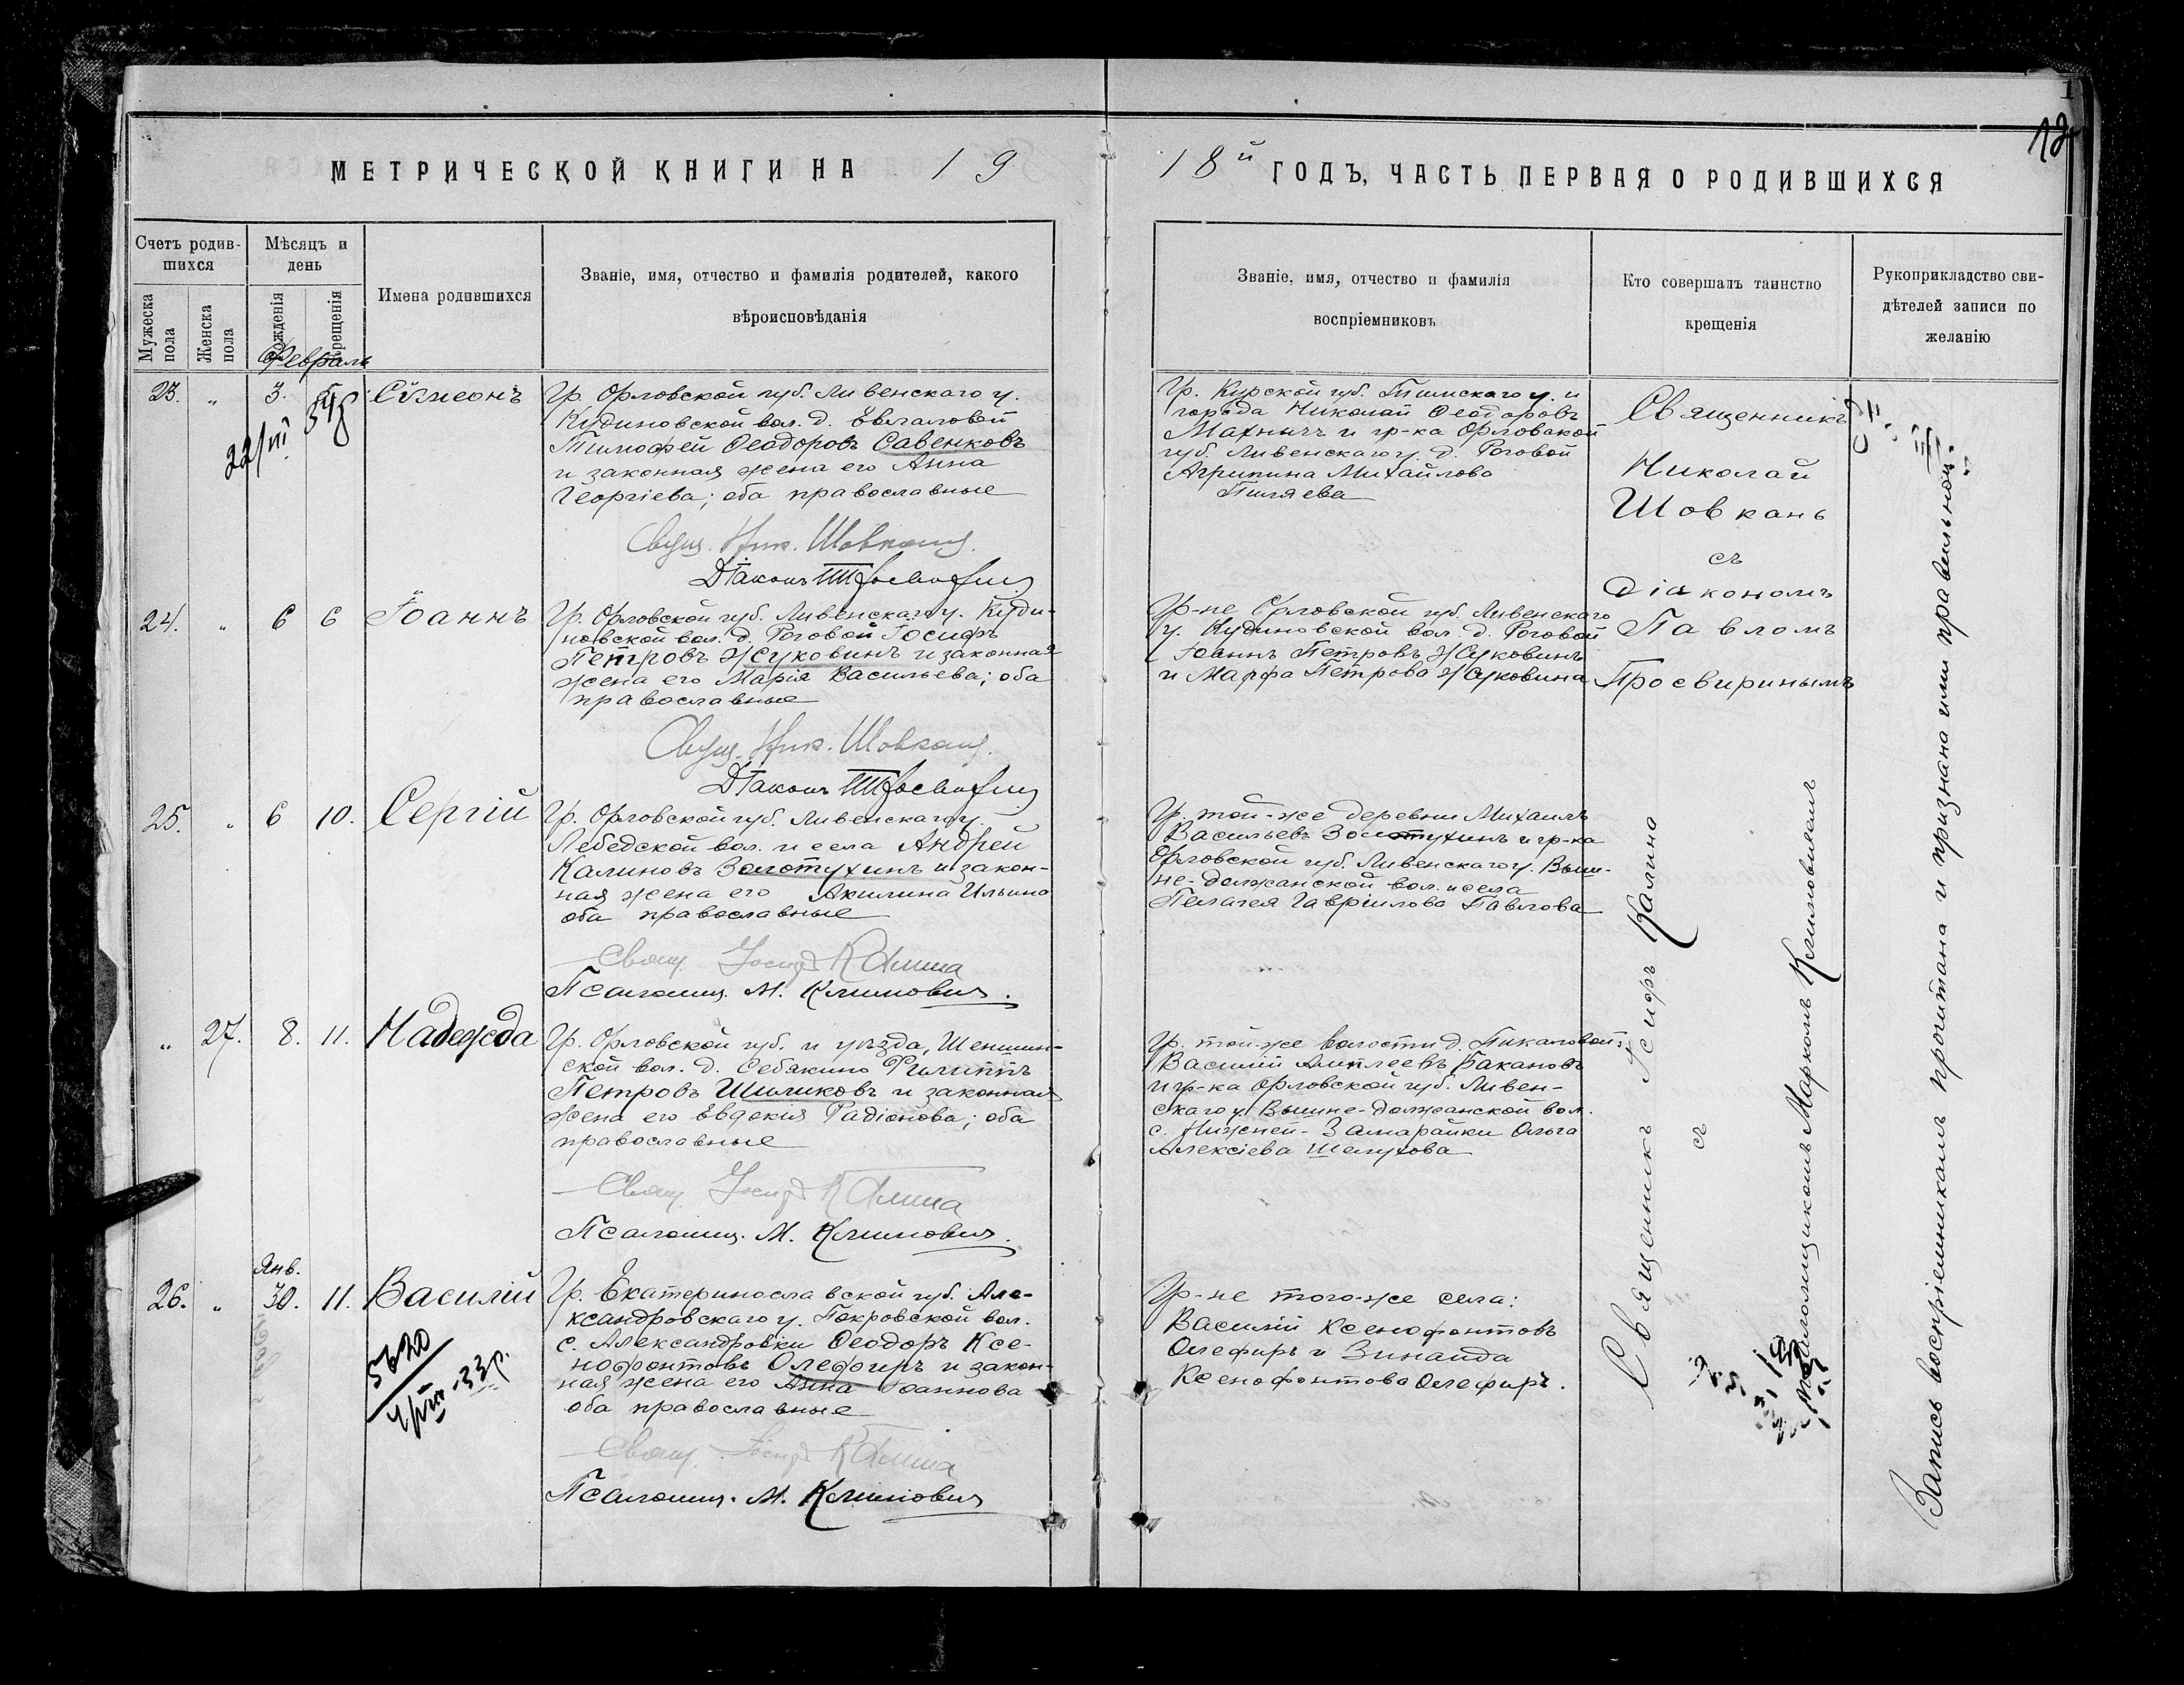 МЕТРИЧЕСКОЙ КНИГИ НА 19
18й ГОДЪ, ЧАСТЬ ПЕРВАЯ О РОДИВШИХСЯ
Счетъ родив-
шихся
Мужеска
пола
Женска
пола
Мѣсяцъ и
день
рожденія
крещенія
Февраль
Имена родившихся
Званіе, имя, отчество и фамилія родителей, какого
вѣроисповѣданія
Званіе, имя, отчество и фамилія
воспріемниковъ
Кто совершалъ таинство
крещенія
Рукоприкладство сви-
дѣтелей записи по
желанію
23. „ 3. Сімеонъ
Гр. Орловской губ. Ливенскаго у.
Кудиновской вол. д. Евлаловой
Тимофей Ѳеодоровъ Савенковъ
и законная жена его Анна
Георгіева; оба православные
Свящ. Ник. Шовкань
Діаконъ
Гр. Курской губ. Тимскаго у. и
города Николай Ѳеодоровъ
и гр-ка Орловской
губ. Ливенскаго у. д. Роговой
Агрипина Михайлова
24. „ 6 6 Іоаннъ
Гр. Орловской губ. Ливенскаго у. Куди-
новской вол. д. Роговой Іосифъ
Петровъ Жуковинъ и законная
жена его Марія Васильева; оба
православные
Свящ. Ник. Шовкань
Діаконъ
Гр-не Орловской губ. Ливенскаго
у. Кудиновской вол. д. Роговой
Іоаннъ Петровъ Жуковинъ
и Марфа Петрова Жуковина
Священникъ
Николай
Шовкань
съ
діакономъ
Павломъ
Просвиринымъ
25. „ 6 10. Сергій
Гр. Орловской губ. Ливенскаго у.
Лебедской вол. и села Андрей
Калиновъ Золотухинъ и закон-
ная жена его Акилина Ильина
оба православные
Свящ. Іосифъ Калина
Псаломщ. М. Климовичъ.
Гр. той-же деревни Михаилъ
Васильевъ Золотухинъ и гр-ка
Орловской губ. Ливенскаго у. Выш-
не-должанской вол. и села
Пелагея Гавріилова Павлова
„ 27. 8. 11. Надежда
Гр. Орловской губ. и уѣзда, Шеншин-
ской вол. д. Себякино Филиппъ
Петровъ Шиликовъ и законная
жена его Евдокія Радіонова; оба
православные
Свящ. Іосифъ Калина
Псаломщ. М. Климовичъ.
Гр. той-же волости д. Пикаловой:
Василій Бакановъ
и гр-ка Орловской губ. Ливен-
скаго у. Вышне-должанской вол.
с. Нижней-Замарайки Ольга
Алексіева Шелухова
Янв.
26. „ 30. 11. Василій
5620
Гр. Екатеринославской губ. Але-
ксандровскаго у. Покровской вол.
с. Александровки Ѳеодоръ Ксе-
нофонтовъ Олефиръ и закон-
ная жена его Анна Іоаннова
оба православные
Свящ. Іосифъ Калина
Псаломщ. М. Климовичъ
Гр-не того-же села:
Василій Ксенофонтовъ
Олефиръ и Зинаида
Ксенофонтова Олефиръ.
Священникъ Іосифъ Калина
съ
Псаломщикомъ Маркомъ Климовичемъ
Запись воспріемниками прочитана и признана ими правильной.